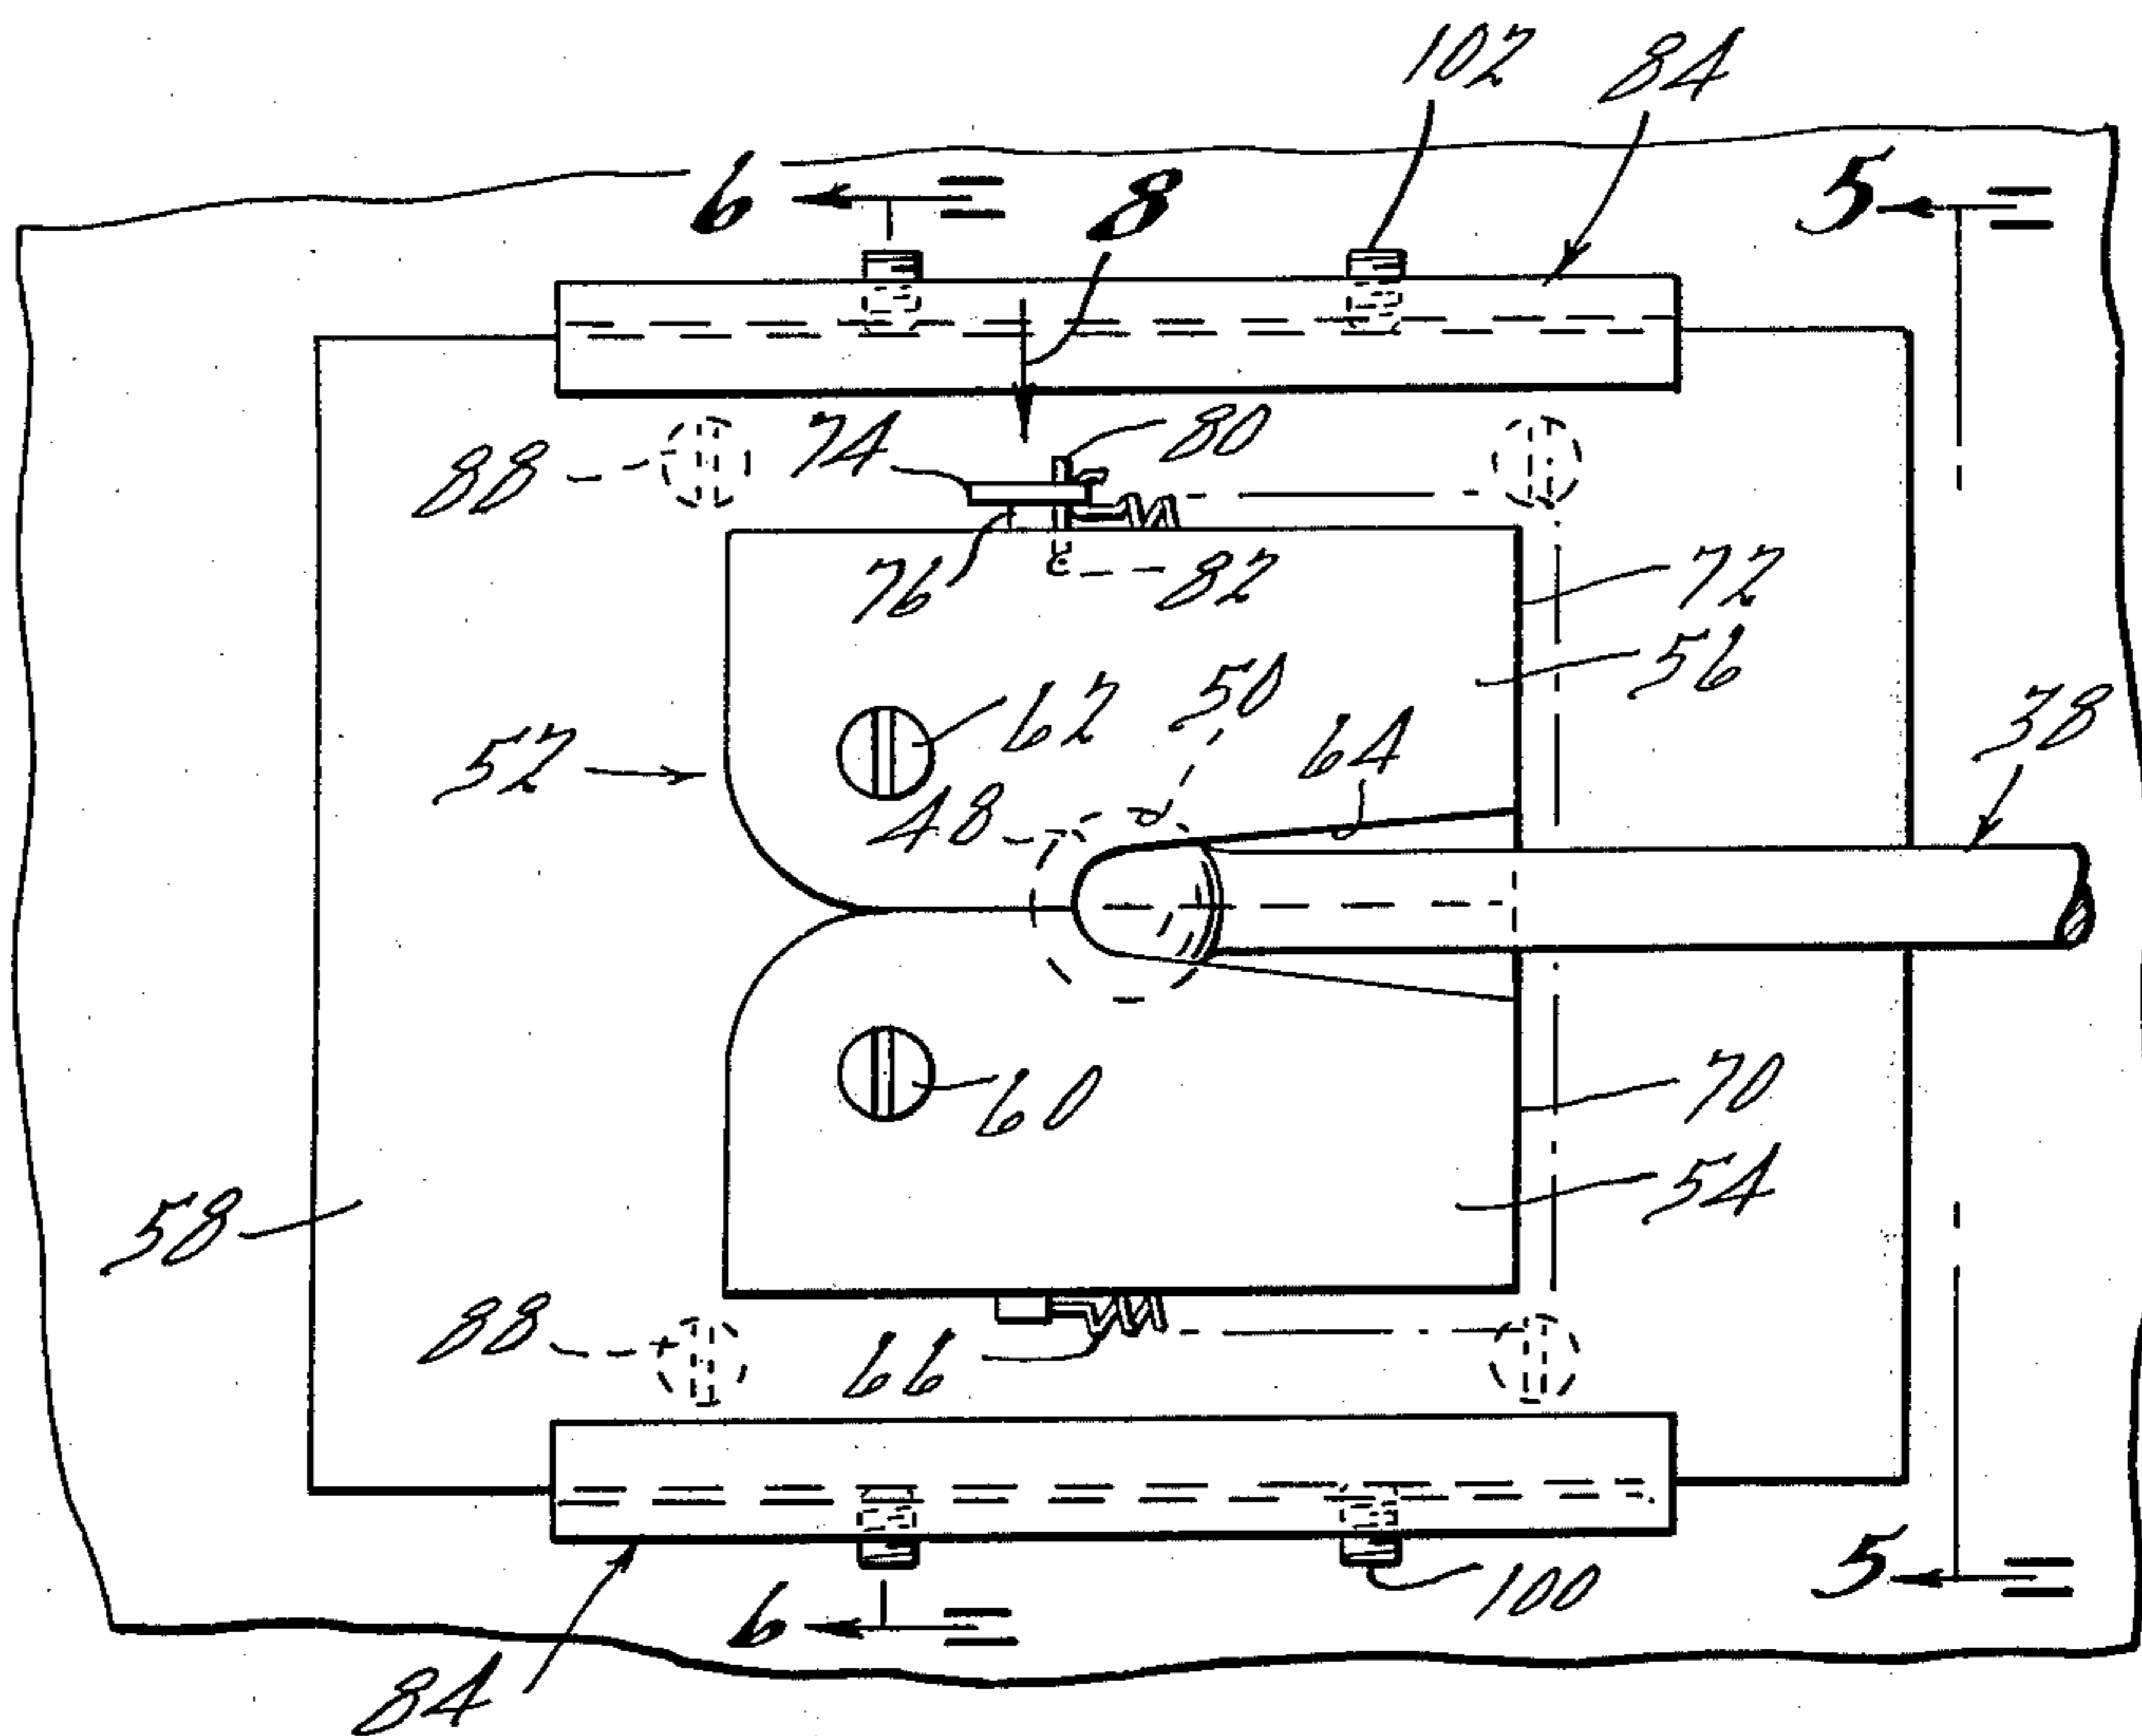 102
84
6
8
5
88
74
80
76
82
72
56
62
50
64
38
52
48
60
70
54
58
88
66
100
5
6
84